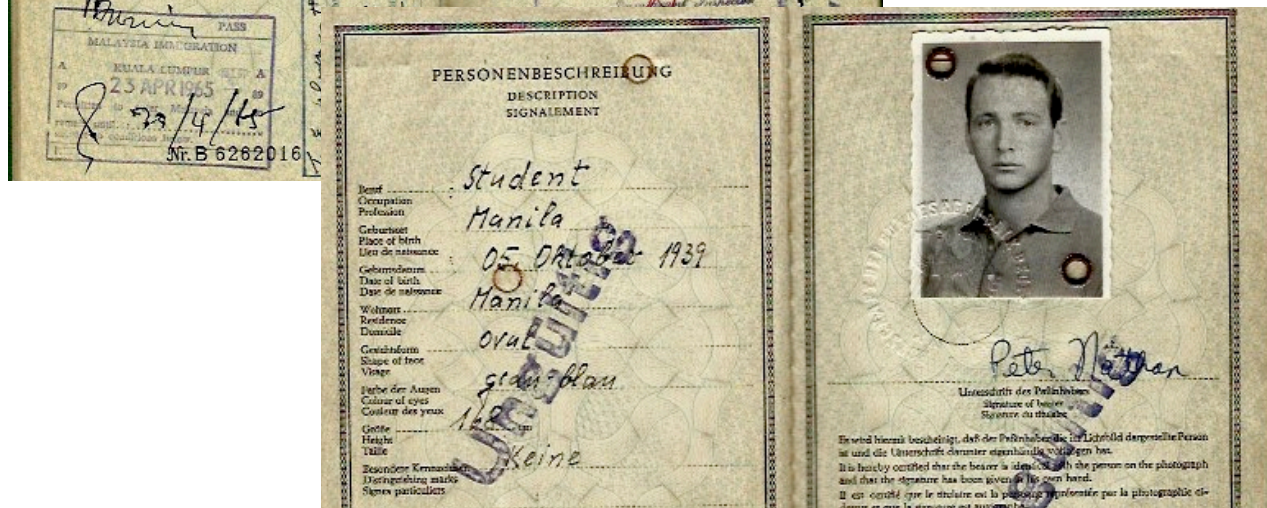 PASS
MALAYSIA IMMIGRATION
KUALA LUMPUR
23 APR 1965
Nr. B 6262016
PERSONENBESCHREIBUNG
DESCRIPTION
SIGNALEMENT
Beruf
Occupation
Profession
Student
Geburtsort
Place of birth
Lieu de naissance
Manila
Geburtsdatum
Date of birth
Date de naissance
05. Oktober 1939
Wohnort
Residence
Domicile
Manila
Gesichtsform
Shape of face
Visage
oval
Farbe der Augen
Colour of eyes
Couleur des yeux
grau-blau
Größe
Height
Taille
cm
Besondere Kennzeichen
Distinguishing marks
Signes particuliers
Keine
Ungültig
Peter Nathan
Unterschrift des Paßinhabers
Signature of bearer
Signature du titulaire
Es wird hiermit bescheinigt, daß der Paßinhaber die im Lichtbild dargestellte Person
ist und die Unterschrift darunter eigenhändig vollzogen hat.
It is hereby certified that the bearer is identical with the person on the photograph
and that the signature has been given in his own hand.
Il est certifié que le titulaire est la personne représentée par la photographie ci-